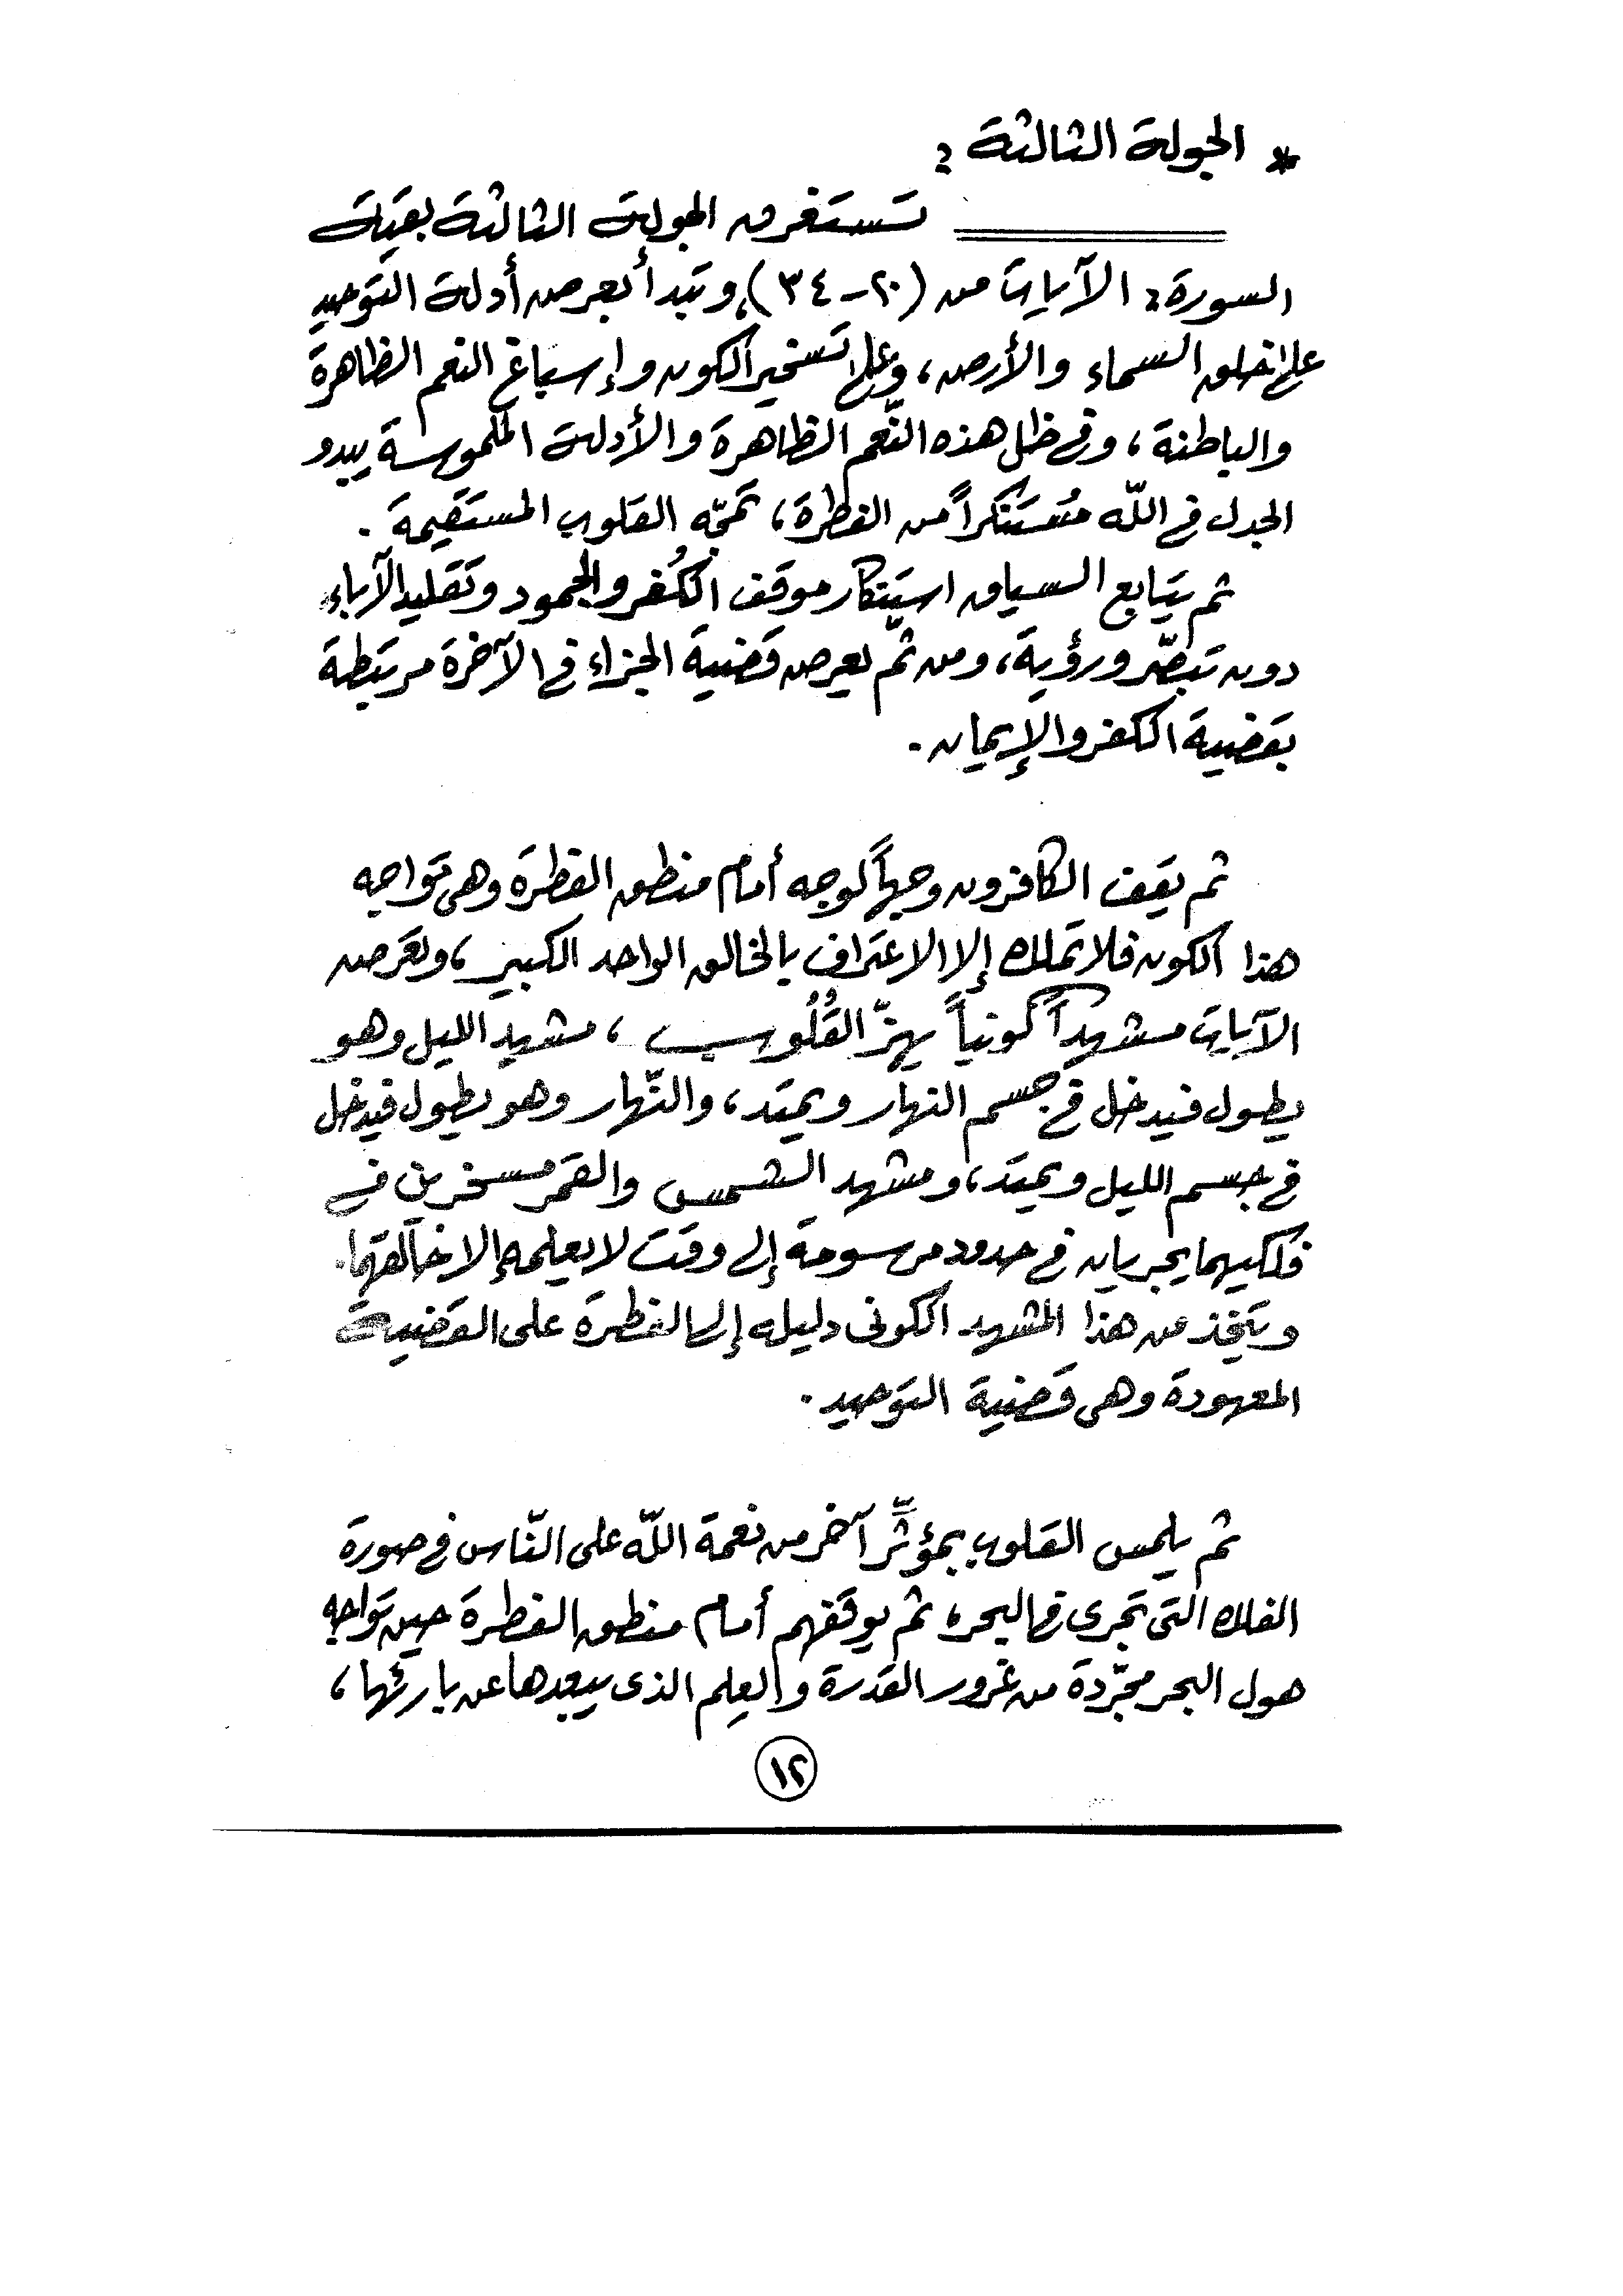 * الجولة الثالثة :
تستغرق الجولة الثالثة بقية
السورة : الآيات من (٢٠-٣٤)، وتبدأ بعرض أدلة التوحيد
على خلق السماء والأرض، وعلى تسخير الكون وإسباغ النعم الظاهرة
والباطنة ، وفى ظل هذه النّعم الظاهرة والأدلة الملموسة يبدو
الجدل فى اللّه مُستنكراً من الفطرة ، تمجّه القلوب المستقيمة .
ثم يتابع السياق استنكار موقف الكُفر والجمود وتقليد الآباء
دون تبصّر ورؤية ، ومن ثمّ يعرض قضية الجزاء فى الآخرة مرتبطة
بقضية الكفر والإيمان .
ثم يقف الكافرون وجهاً لوجه أمام منطق الفطرة وهى تواجه
هذا الكون فلا تملك إلا الاعتراف بالخالق الواحد الكبير ، وتعرض
الآيات مشهداً كونياً يهزّ القُلُوب ، مشهد الليل وهو
يطول فيدخل فى جسم النهار ويمتد ، والنّهار وهو يطول فيدخل
فى جسم الليل ويمتد ، ومشهد الشمس والقمر مسخرين فى
فلكيهما يجريان فى حدود مرسومة إلى وقت لا يعلمه إلا خالقهما .
ويتخذ من هذا المشهد الكونى دليله إلى الفطرة على القضية
المعهودة وهى قضية التوحيد .
ثم يلمس القلوب بمؤثِّر آخر من نعمة اللّه على النّاس فى صورة
الفلك التى تجرى فى البحر ، ثم يوقفهم أمام منطق الفطرة حين تواجه
هول البحر مجرّدة من غرور القدرة والعِلم الذى يبعدها عن بارئها ،
١٢